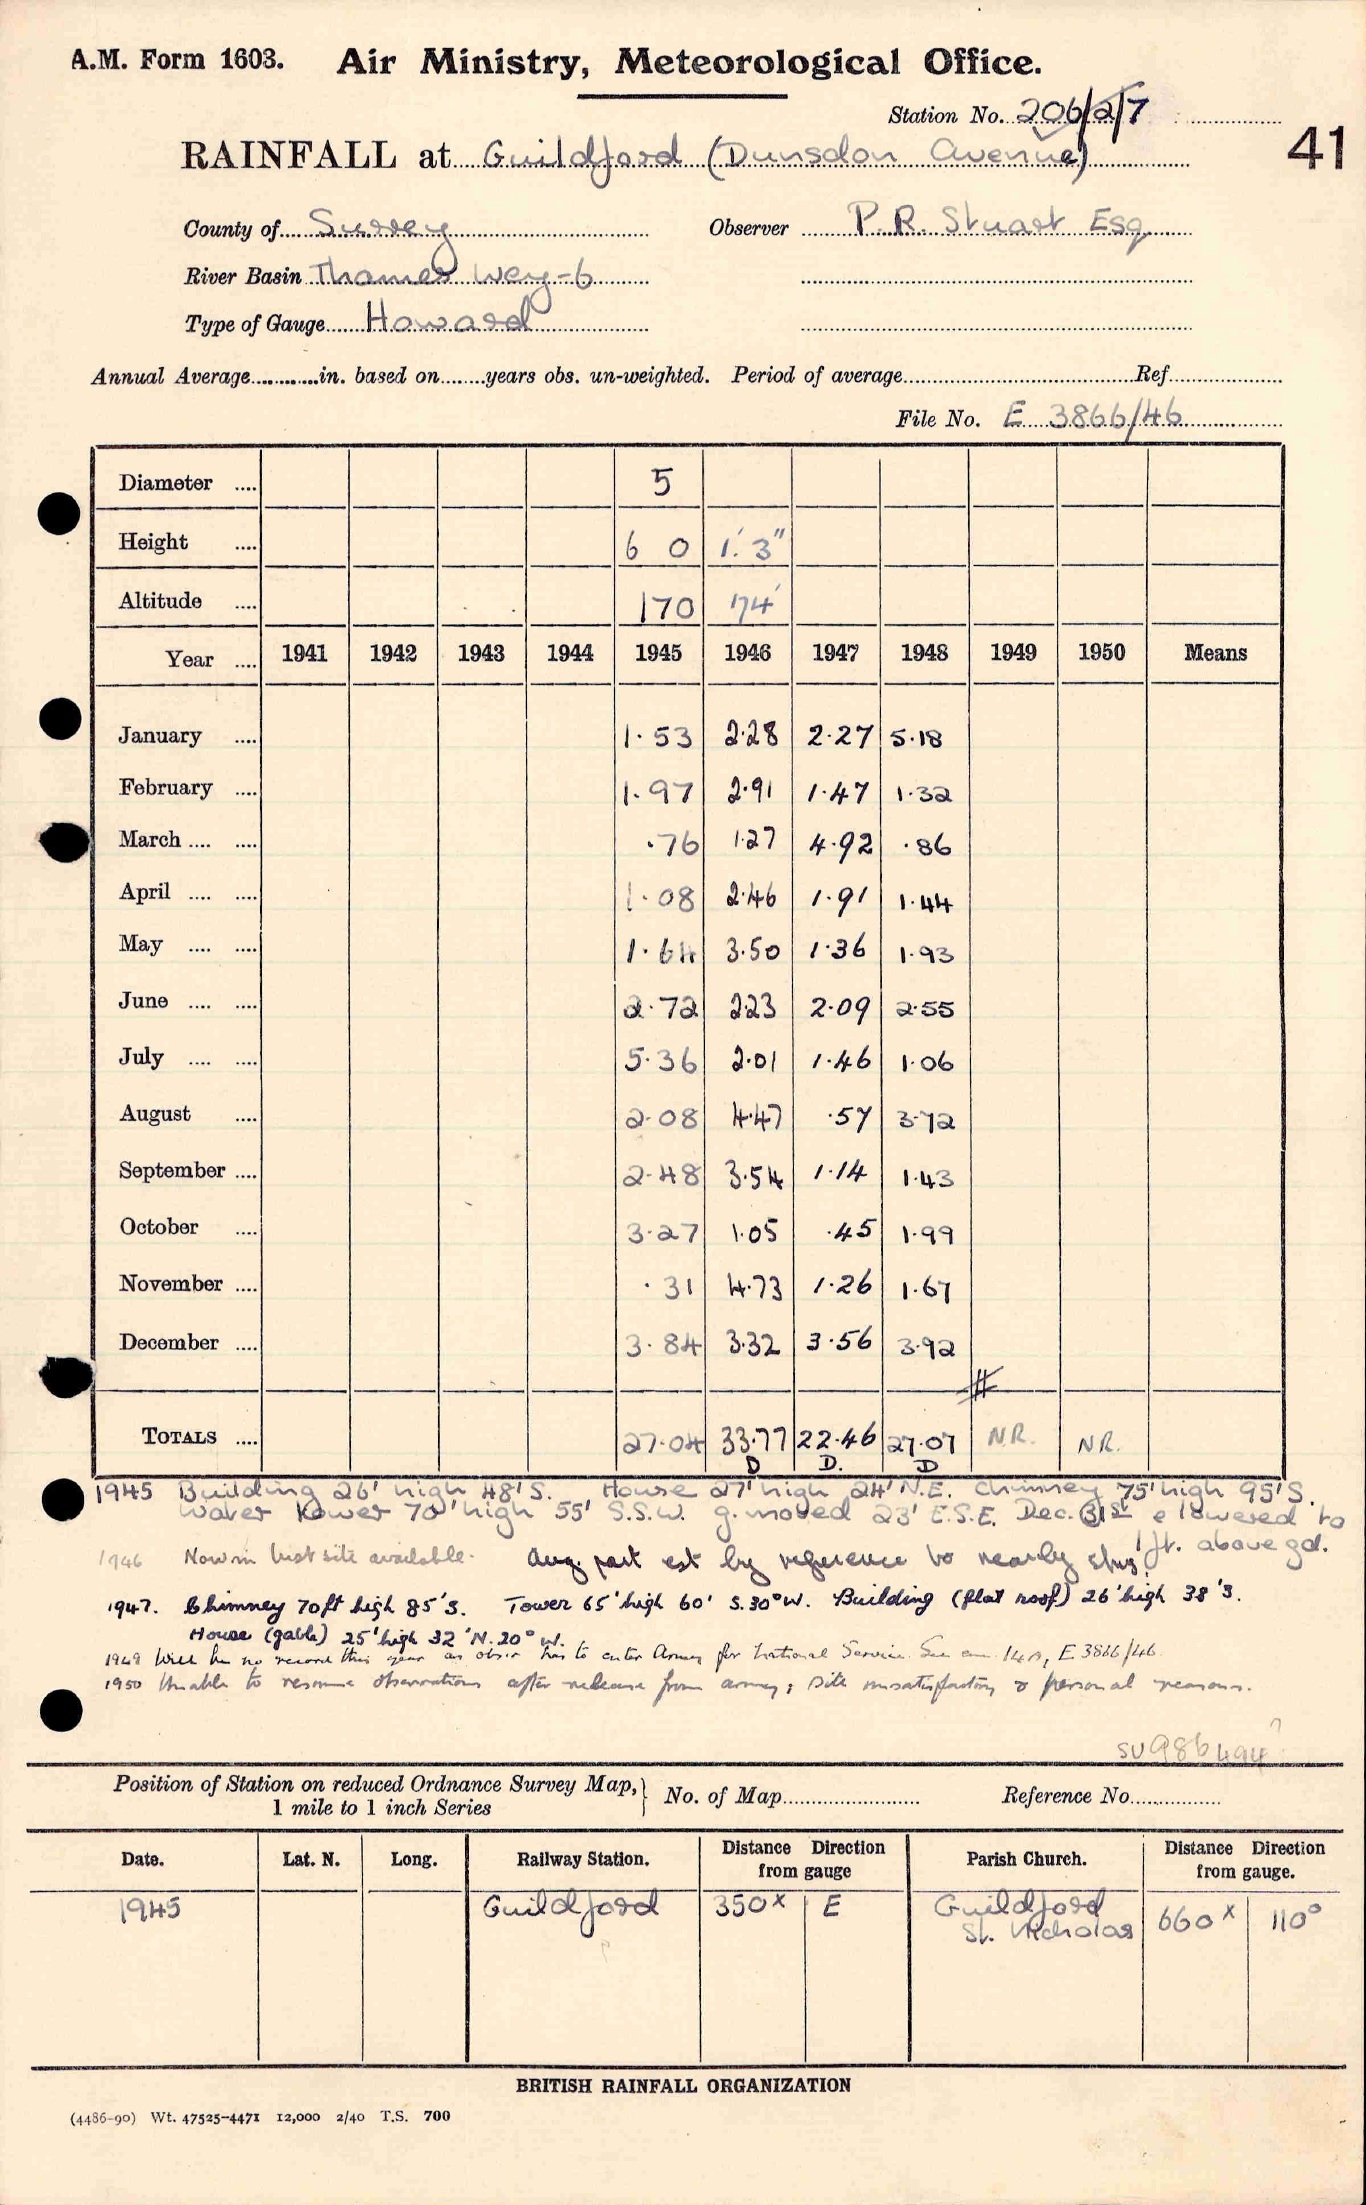 A.M. Form 1603. Air Ministry, Meteorological Office.
Station No. 206/2/7
RAINFALL at Guildford (Dunsdon Avenue) 41
County of Surrey Observer P.R. Stuart Esq
River Basin Thames Wey-6
Type of Gauge Howard
Annual Average in. based on years obs. un-weighted. Period of average Ref
File No. E 3866/46
Diameter 5
Height 6 0 1' 3"
Altitude 170 174'
Year 1941 1942 1943 1944 1945 1946 1947 1948 1949 1950 Means
January 1.53 2.28 2.27 5.18
February 1.97 2.91 1.47 1.32
March .76 1.27 4.92 .86
April 1.08 2.46 1.91 1.44
May 1.64 3.50 1.36 1.93
June 2.72 2.23 2.09 2.55
July 5.36 2.01 1.46 1.06
August 2.08 4.47 .57 3.72
September 2.48 3.54 1.14 1.43
October 3.27 1.05 .45 1.99
November .31 4.73 1.26 1.67
December 3.84 3.32 3.56 3.92
TOTALS 27.04 33.77 22.46 27.07 N.R. N.R.
D D. D
1945 Building 26' high 48' S. House 27' high 24' N.E. Chimney 75' high 95' S.
Water tower 70' high 55' S.S.W. g. moved 23' E.S.E. Dec. 31st & lowered to
1 ft. above gd.
1946 Now in best site available. Aug. part est by reference to nearby stns.
1947. Chimney 70ft high 85' S. Tower 65' high 60' S.30°W. Building (flat roof) 26' high 38' S.
House (gable) 25' high 32' N.20°W.
1949 Will be no record this year as obsr has to enter Army for National Service. See 14A, E.3866/46
1950 Unable to resume observations after release from army; site unsatisfactory & personal reasons.
SU 986494 ?
Position of Station on reduced Ordnance Survey Map, No. of Map Reference No.
1 mile to 1 inch Series
Date. Lat. N. Long. Railway Station. Distance Direction from gauge Parish Church. Distance Direction from gauge.
1945 Guildford 350x E Guildford St. Nicholas 660x 110°
BRITISH RAINFALL ORGANIZATION
(4486-90) Wt. 47525-4471 12,000 2/40 T.S. 700